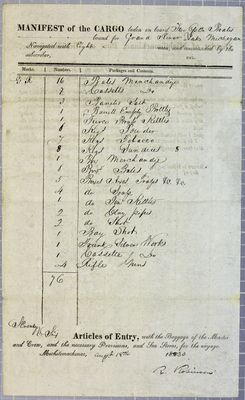 MANIFEST of the CARGO laden on board The Open Boats
bound for Grand River Lake Michigan
Navigated with Eight men, and commanded by the
subscriber,
viz.
Marks. Numbers. Packages and Contents.
16 Bales Merchandize
2 Cassetts Do
3 Barrels Salt
1 Barrell Empty Bottles
1 Tierce Brass Kettles
6 Kegs Powder
Kegs Tobacco
Kegs Sundries
1 Box Merchandize
1 Box
5 Traps &c. &c.
4 do
1 do Tin Kettles
2 do Clay pipes
2 do Shot
1 Bag Shot
1 Trunk Silver Works
1 Cassette Do
4 Rifle Guns
76
Articles of Entry, with the Baggage of the Master
and Crew, and the necessary Provisions, and Sea Stores, for the voyage.
Michilimackinac, 1830
R. Robinson